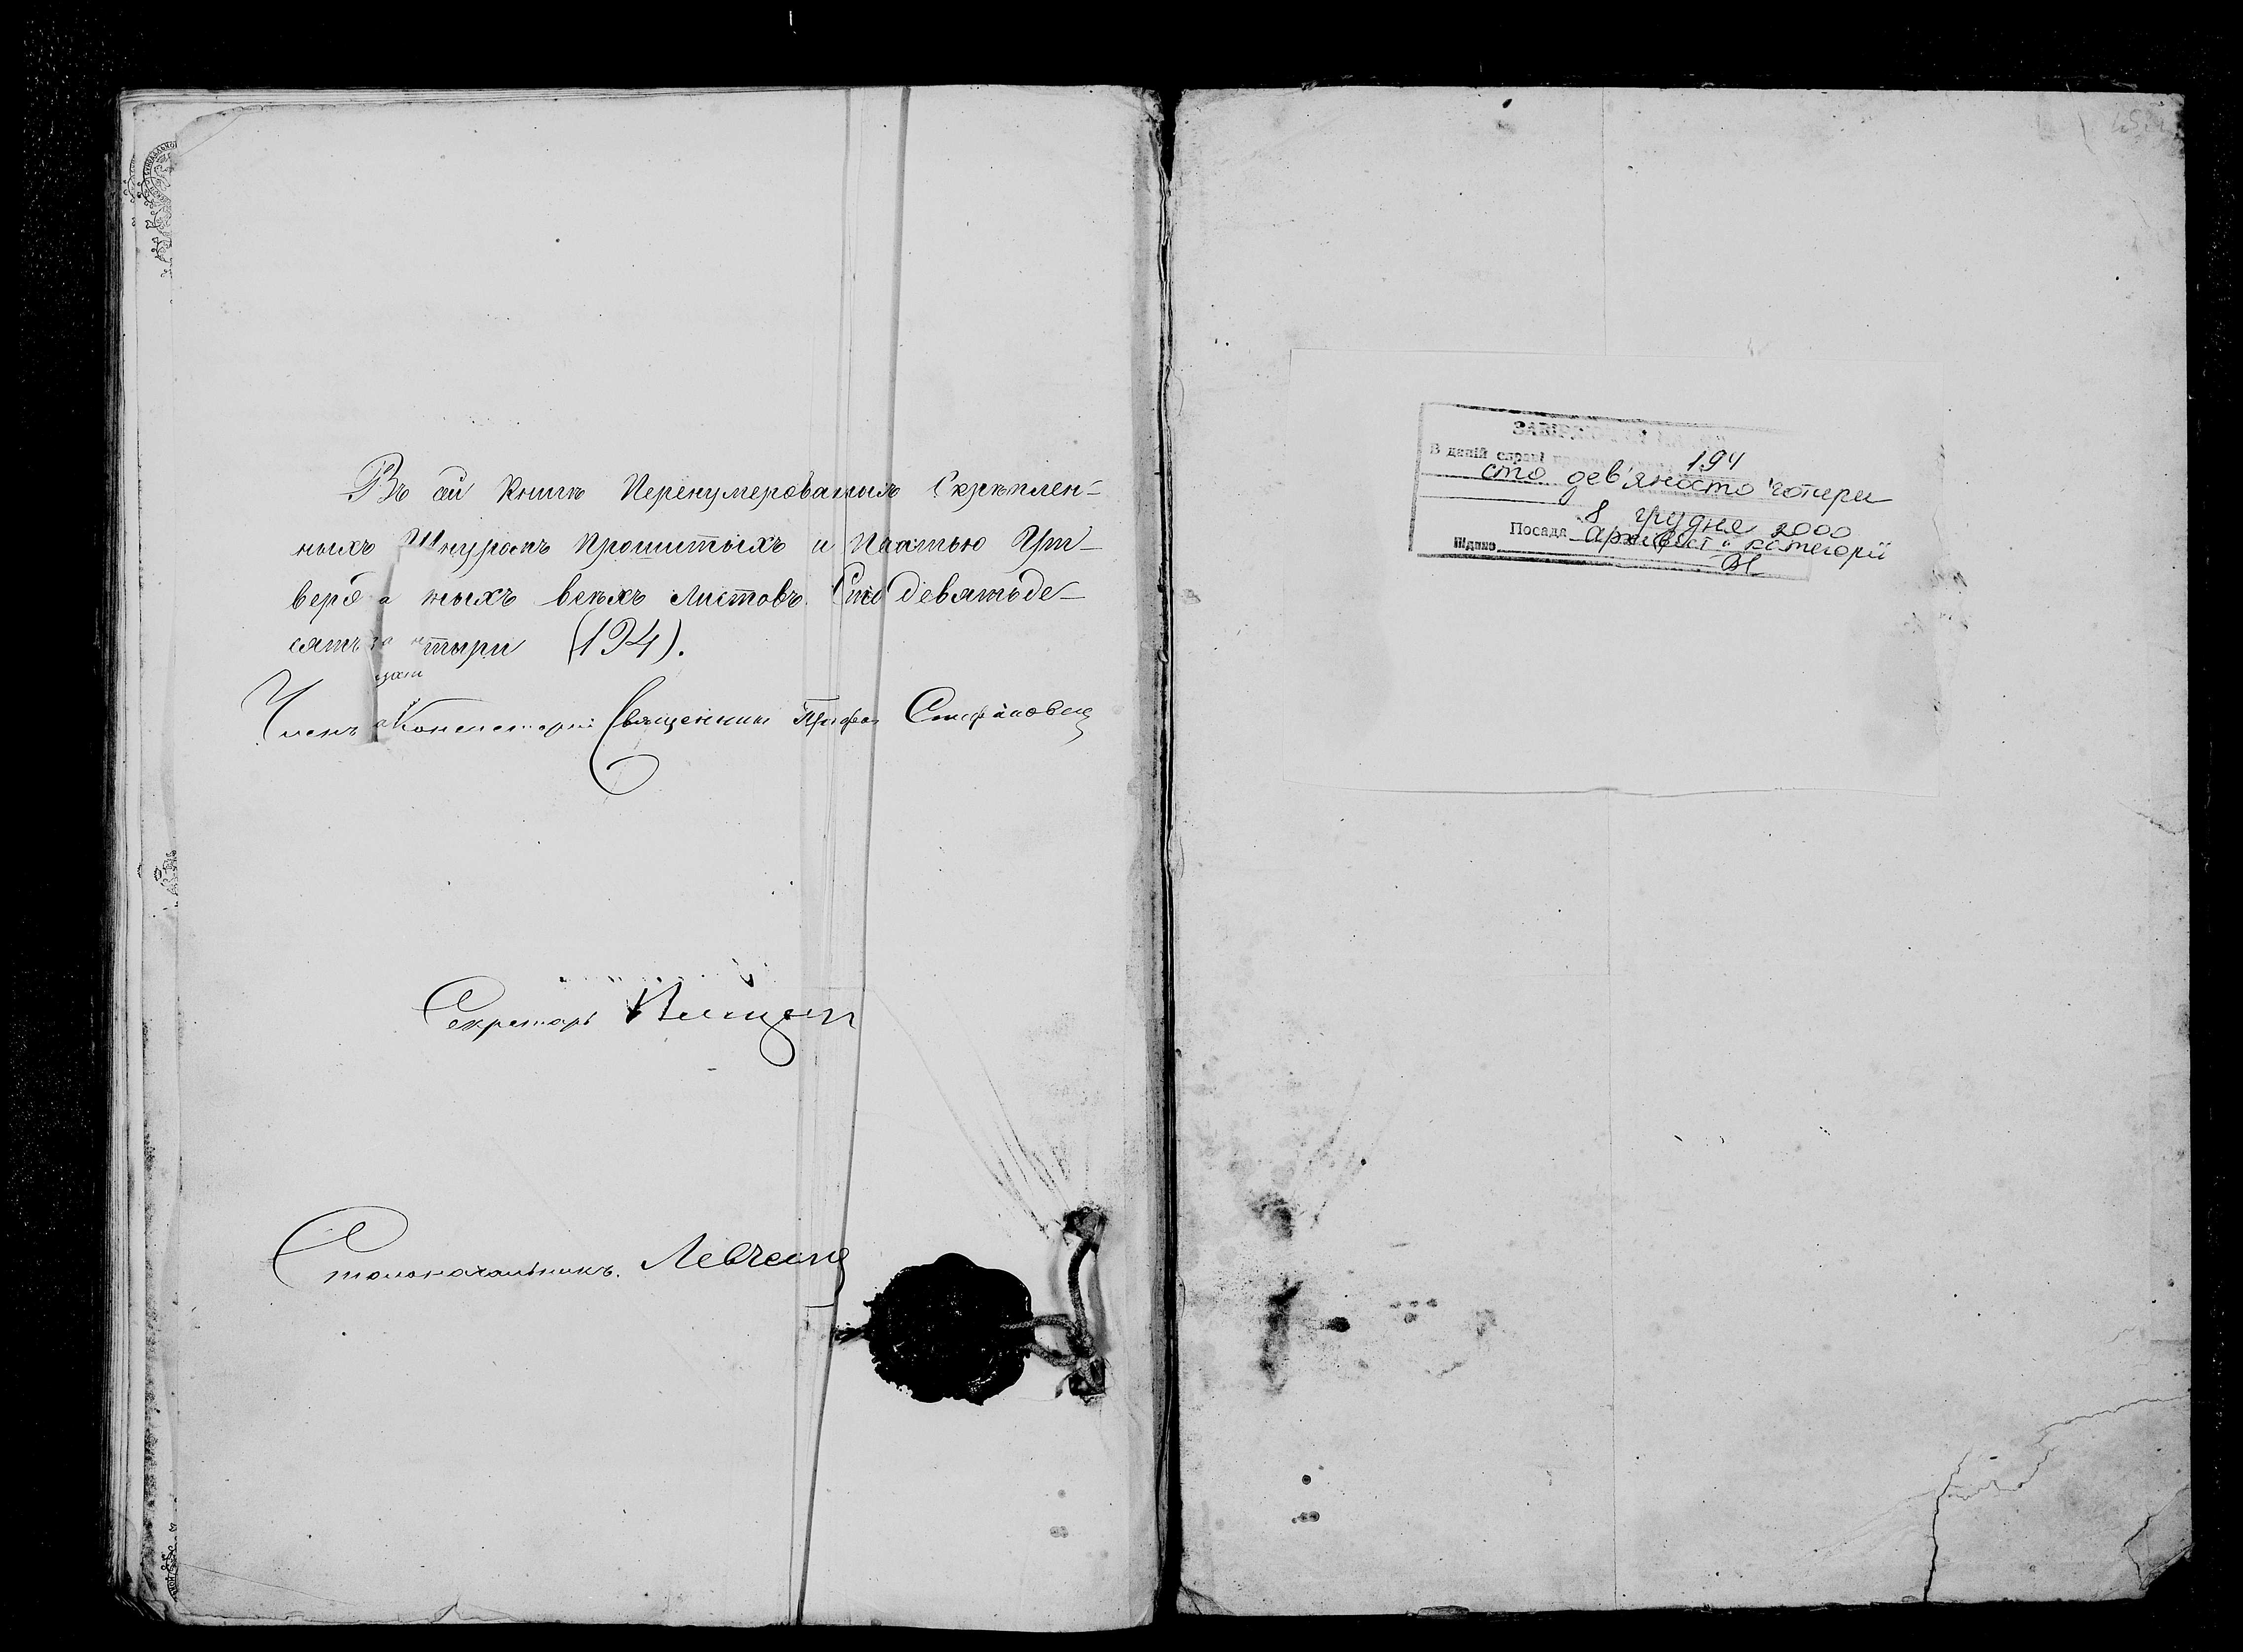 Въ сей Книгѣ Перенумерованныхъ Скрѣплен-
ныхъ Шнуромъ прошитыхъ и Печатью Ут-
верж ныхъ всѣхъ Листовъ Сто девятьде-
сятъ тыри (194).
Членъ Консисторіи Священникъ Стефановъ
Секретарь
Столоначальникъ. Левченко
В даній справі
194
сто дев'яносто чотири
8 грудня 2000
Посада архівіст категорії
Підпис